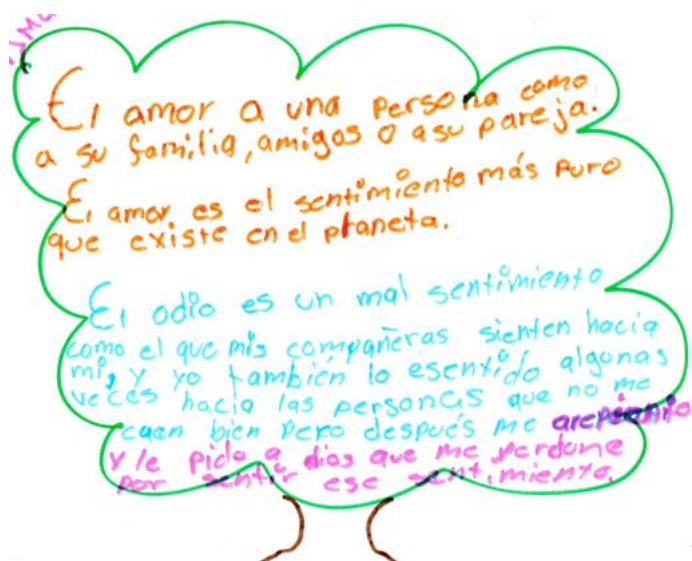 El amor a una persona como
a su familia, amigos o a su pareja.
El amor es el sentimiento más puro
que existe en el planeta.
El odio es un mal sentimiento
como el que mis compañeras sienten hacia
mi, y yo también lo esentido algunas
veces hacia las personas que no me
caen bien pero después me arepiento
y le pido a dios que me perdone
por sentir ese sentimiento.